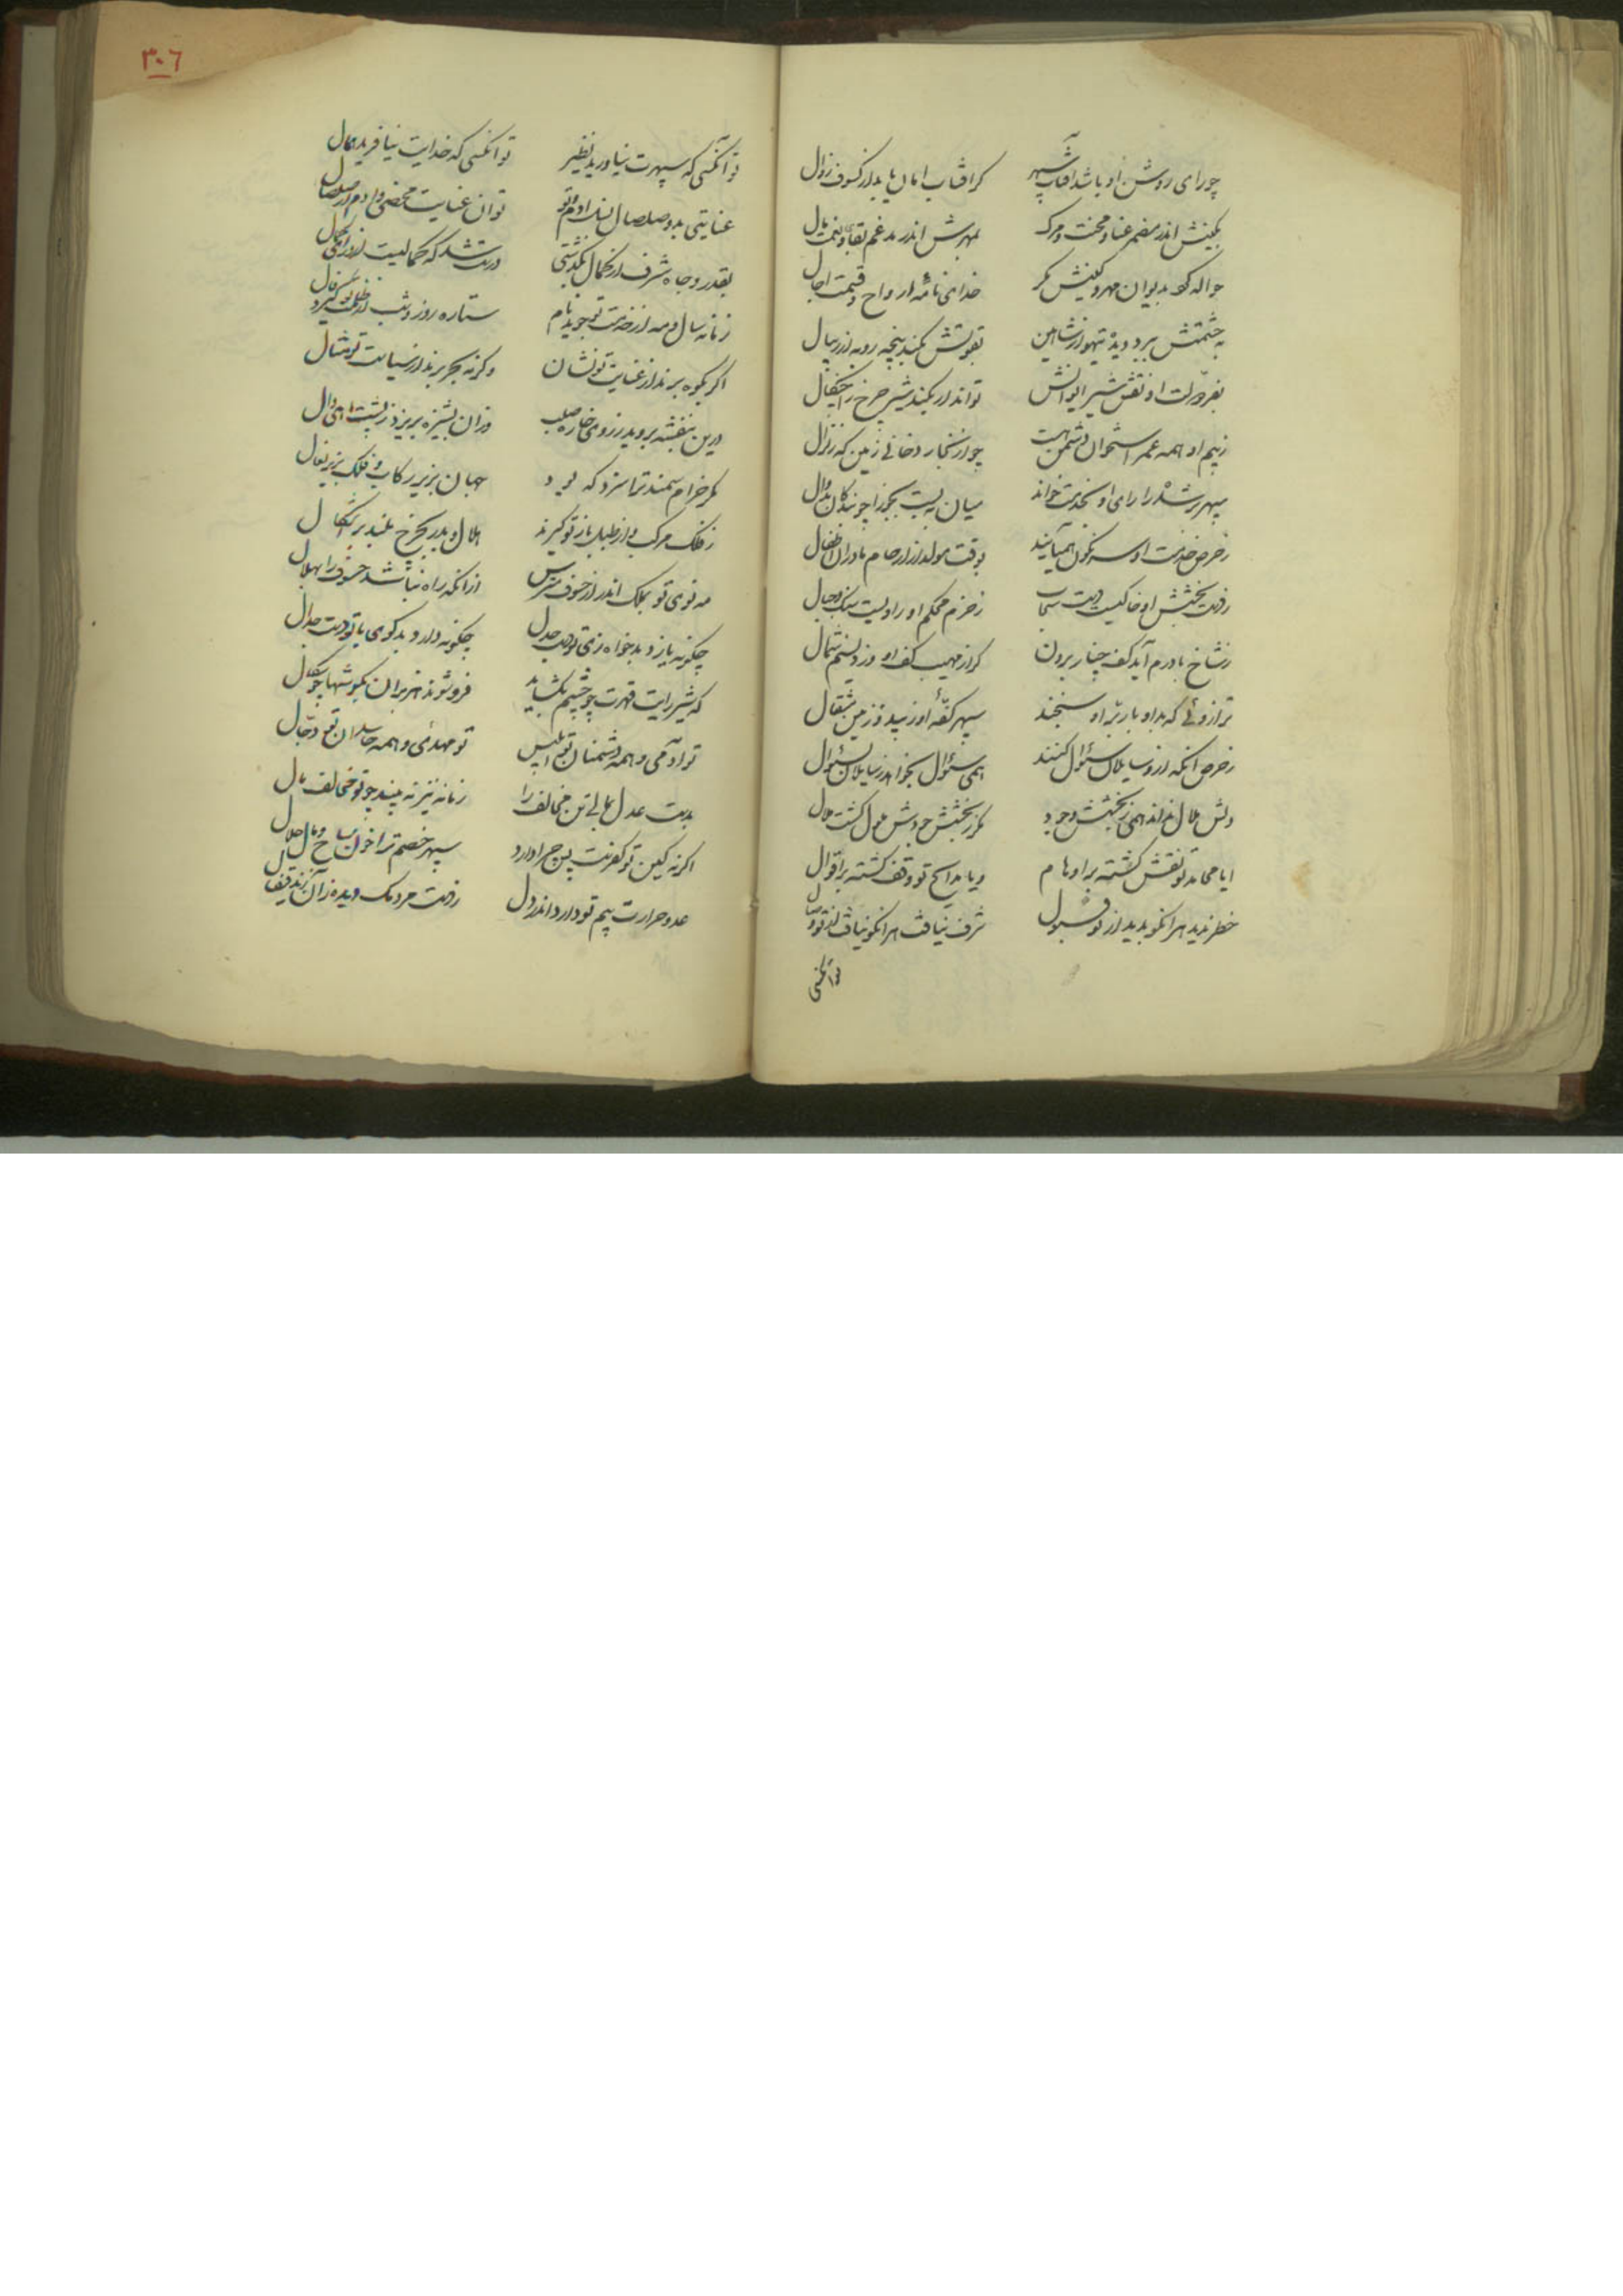 چو رای روشن او باشد آفتاب سپهر گر آفتاب امان یابد از کسوف زوال
بکینش اندر مضمر عنا و محنت و مرگ بمهرش اندر مدغم بقا و نعمت و مال
حواله کو بدیوان مهر و کینش مگر خدای نامه ارواح و قسمت آجال
بحشمتش ببرد دیده تیهو از شاهین بقوتش بکند پنجه روبه از ریبال
بفر دولت او نقش شیر ایوانش تواند ار بکند شیر چرخ را چنگال
ز بیم او همه عمر استخوان دشمن هست چو از بخار دخانی زمین که زلزال
سپهر برشده را رای او بخدمت خواند میان ببست بجوزا چو بندگان بدوال
ز حرص خدمت او سرنگون همی‌آیند بوقت مولد از ارحام مادران اطفال
ز دست بخشش او خاکیست دست سحاب ز حزم محکم او رادیست سنگ و جبال
ز شاخ بادرم آید کف چنار برون گر از مهیب کف او وزد نسیم شمال
ترازوئی که بدو بار بر او سنجند سپهر کفه او زیبد و زمین مثقال
ز حرص آنکه ازو سایلان سئوال کنند همی سئوال بخواهد ز سایلان بسئوال
دلش ملال نداند همی ز بخشش وجود مگر ز بخشش جودش ملول گشت ملال
ایا محامد تو نقش گشته بر اوهام ویا مدایح تو وقف گشته بر اقوال
خطر ندید هر آنکو ندید از تو قبول شرف نیافت هر آنکو نیافت از تو وصال
تو آنکسی
۳۰۶
تو آنکسی که سپهرت نیاورید نظیر تو آنکسی که خدایت نیافرید همال
عنایتی بد و صلصال بنیاد آدم و تو تو آن عنایت محضی و آدم آن صلصال
بقدر و جاه و شرف از کمال بگذشتی درست شد که کمالیست از ورای کمال
زمانه سال و مه از خدمت تو جوید نام ستاره روز و شب از طلعت تو گیرد فال
اگر بکوه برند از عنایت تو نشان وگر به بحر برند از سیاست تو مثال
درین بنفشه بروید ز روی خاره صلب وزان پشیزه بریزد ز پشت ماهی وال
مگر خرام سمند ترا سزد که بود جهان بزیر رکاب و فلک بزیر نعال
ز فلک مرکب و از طبل باز تو گیرند هلال و بدر بچرخ بلند بر اشکال
مه نوی تو بملک اندر از خسوف مترس از آنکه راه نباشد خسوف را بهلال
چگونه یازد بدخواه زی تو دست جدل چگونه دارد بدگوی با تو دست جدال
که شیر رایت قهرت چو خشم بگشاید فرو شوند هزبران بگوشها چو شگال
تو آدمی و همه دشمنان تو ابلیس تو مهدی و همه حاسدان تو دجال
بدست عدل بمالی تن مخالف را زمانه نیز نه بیند چو تو مخالف مال
اگر نه کین تو کفرست پس چرا دارد سپهر خصم ترا خون مباح و مال حلال
عدو حرارت بیم تو دارد اندر دل ز دست مردمک دیده زان زند قیفال